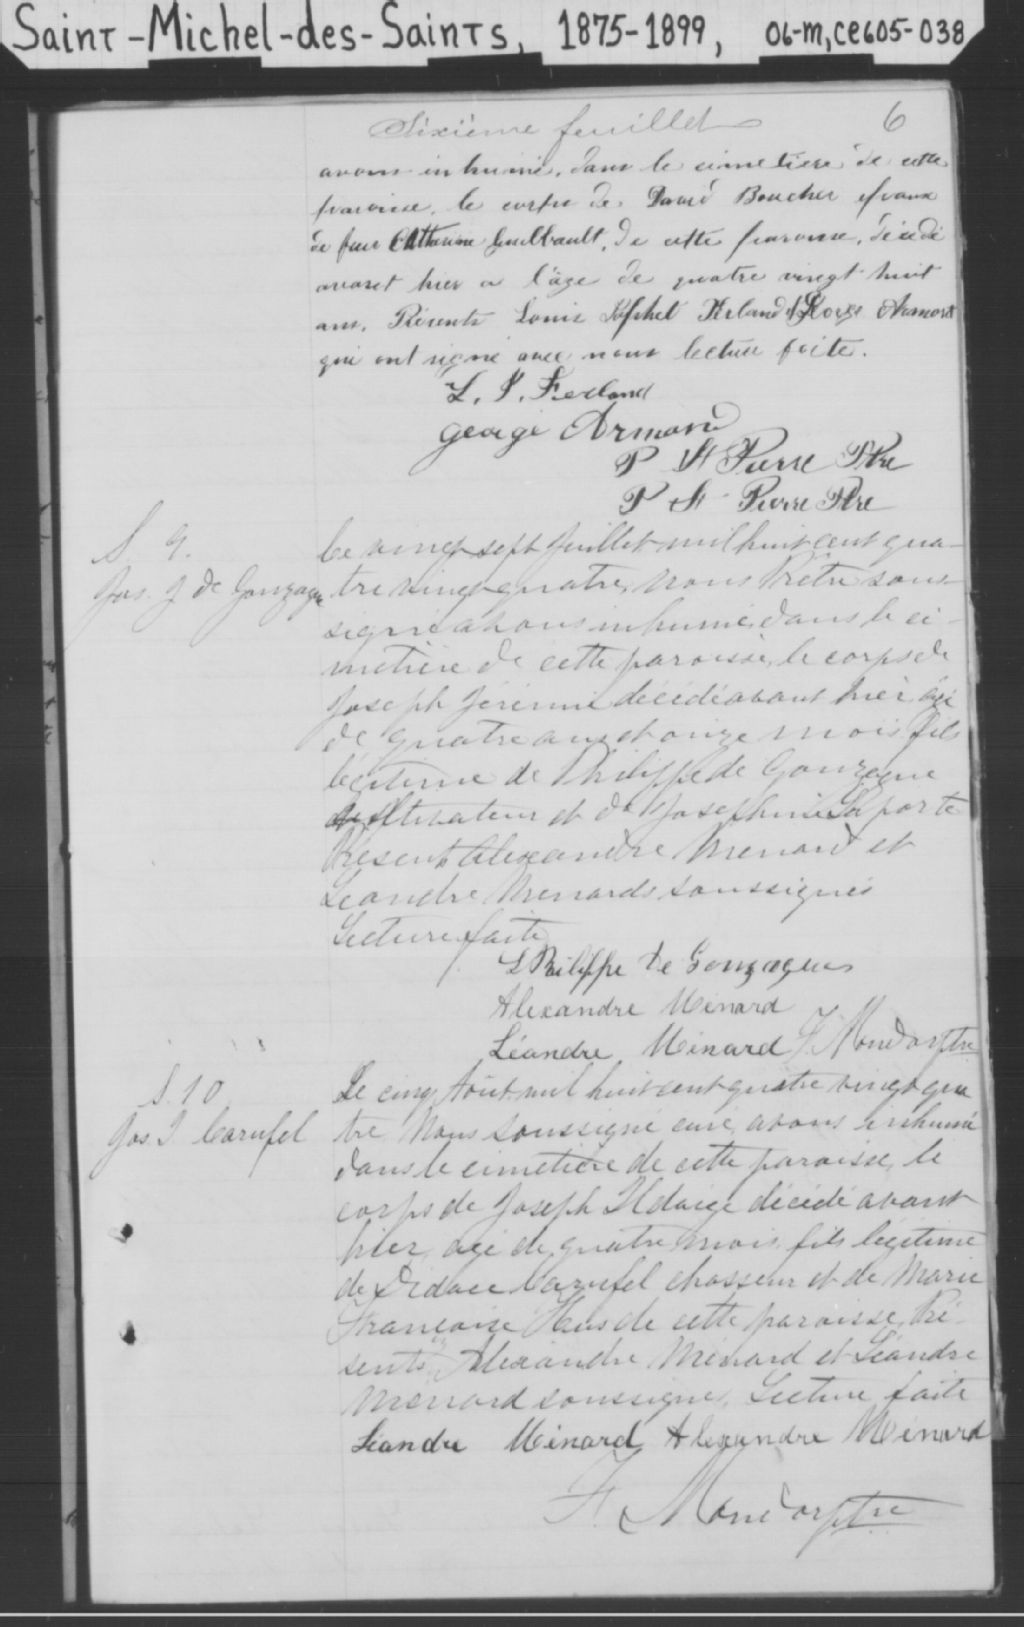 Saint-Michel-des-Saints, 1875-1899, 06-m, ce605-038
Sixième feuillet 6
avons inhumé, dans le cimetière de cette
paroisse, le corps de David Boucher époux
de feue Catherine Guilbault, de cette paroisse, décédé
avant hier a l'âge de quatre vingt huit
ans. Présents Louis Japhet Ferland & George Armand
qui ont signé avec nous lecture faite.
L. J. Ferland
George Armand
P St Pierre Ptre
P St Pierre Ptre
S. 9.
Jos. J de Gonzague
Le vingt sept Juillet mil huit cent qua-
tre vingt quatre, Nous Prêtre sous-
signé avons inhumé dans le ci-
metière de cette paroisse, le corps de
Joseph Jérémie décédé avant hier âgé
de quatre ans et onze mois fils
légitime de Philippe de Gonzague
cultivateur et de Josephine Laporte
Présents Alexandre Menard et
Léandre Menards soussignés
Lecture faite
L Philippe de Gonzagues
Alexandre Ménard
Léandre Ménard F. Mondor ptre
S. 10
Jos. I Carufel
Le cinq Aout mil huit cent quatre vingt qua
tre Nous soussigné curé, avons inhumé
dans le cimetière de cette paroisse, le
corps de Joseph Ildaige décédé avant
hier, agé de quatre mois, fils légitime
de Didace Carufel chasseur et de Marie
Françoise de cette paroisse, Pré-
sents, Alexandre Ménard et Léandre
Menard soussignés, Lecture faite
Léandre Ménard Alexandre Ménard
F. Mondor ptre